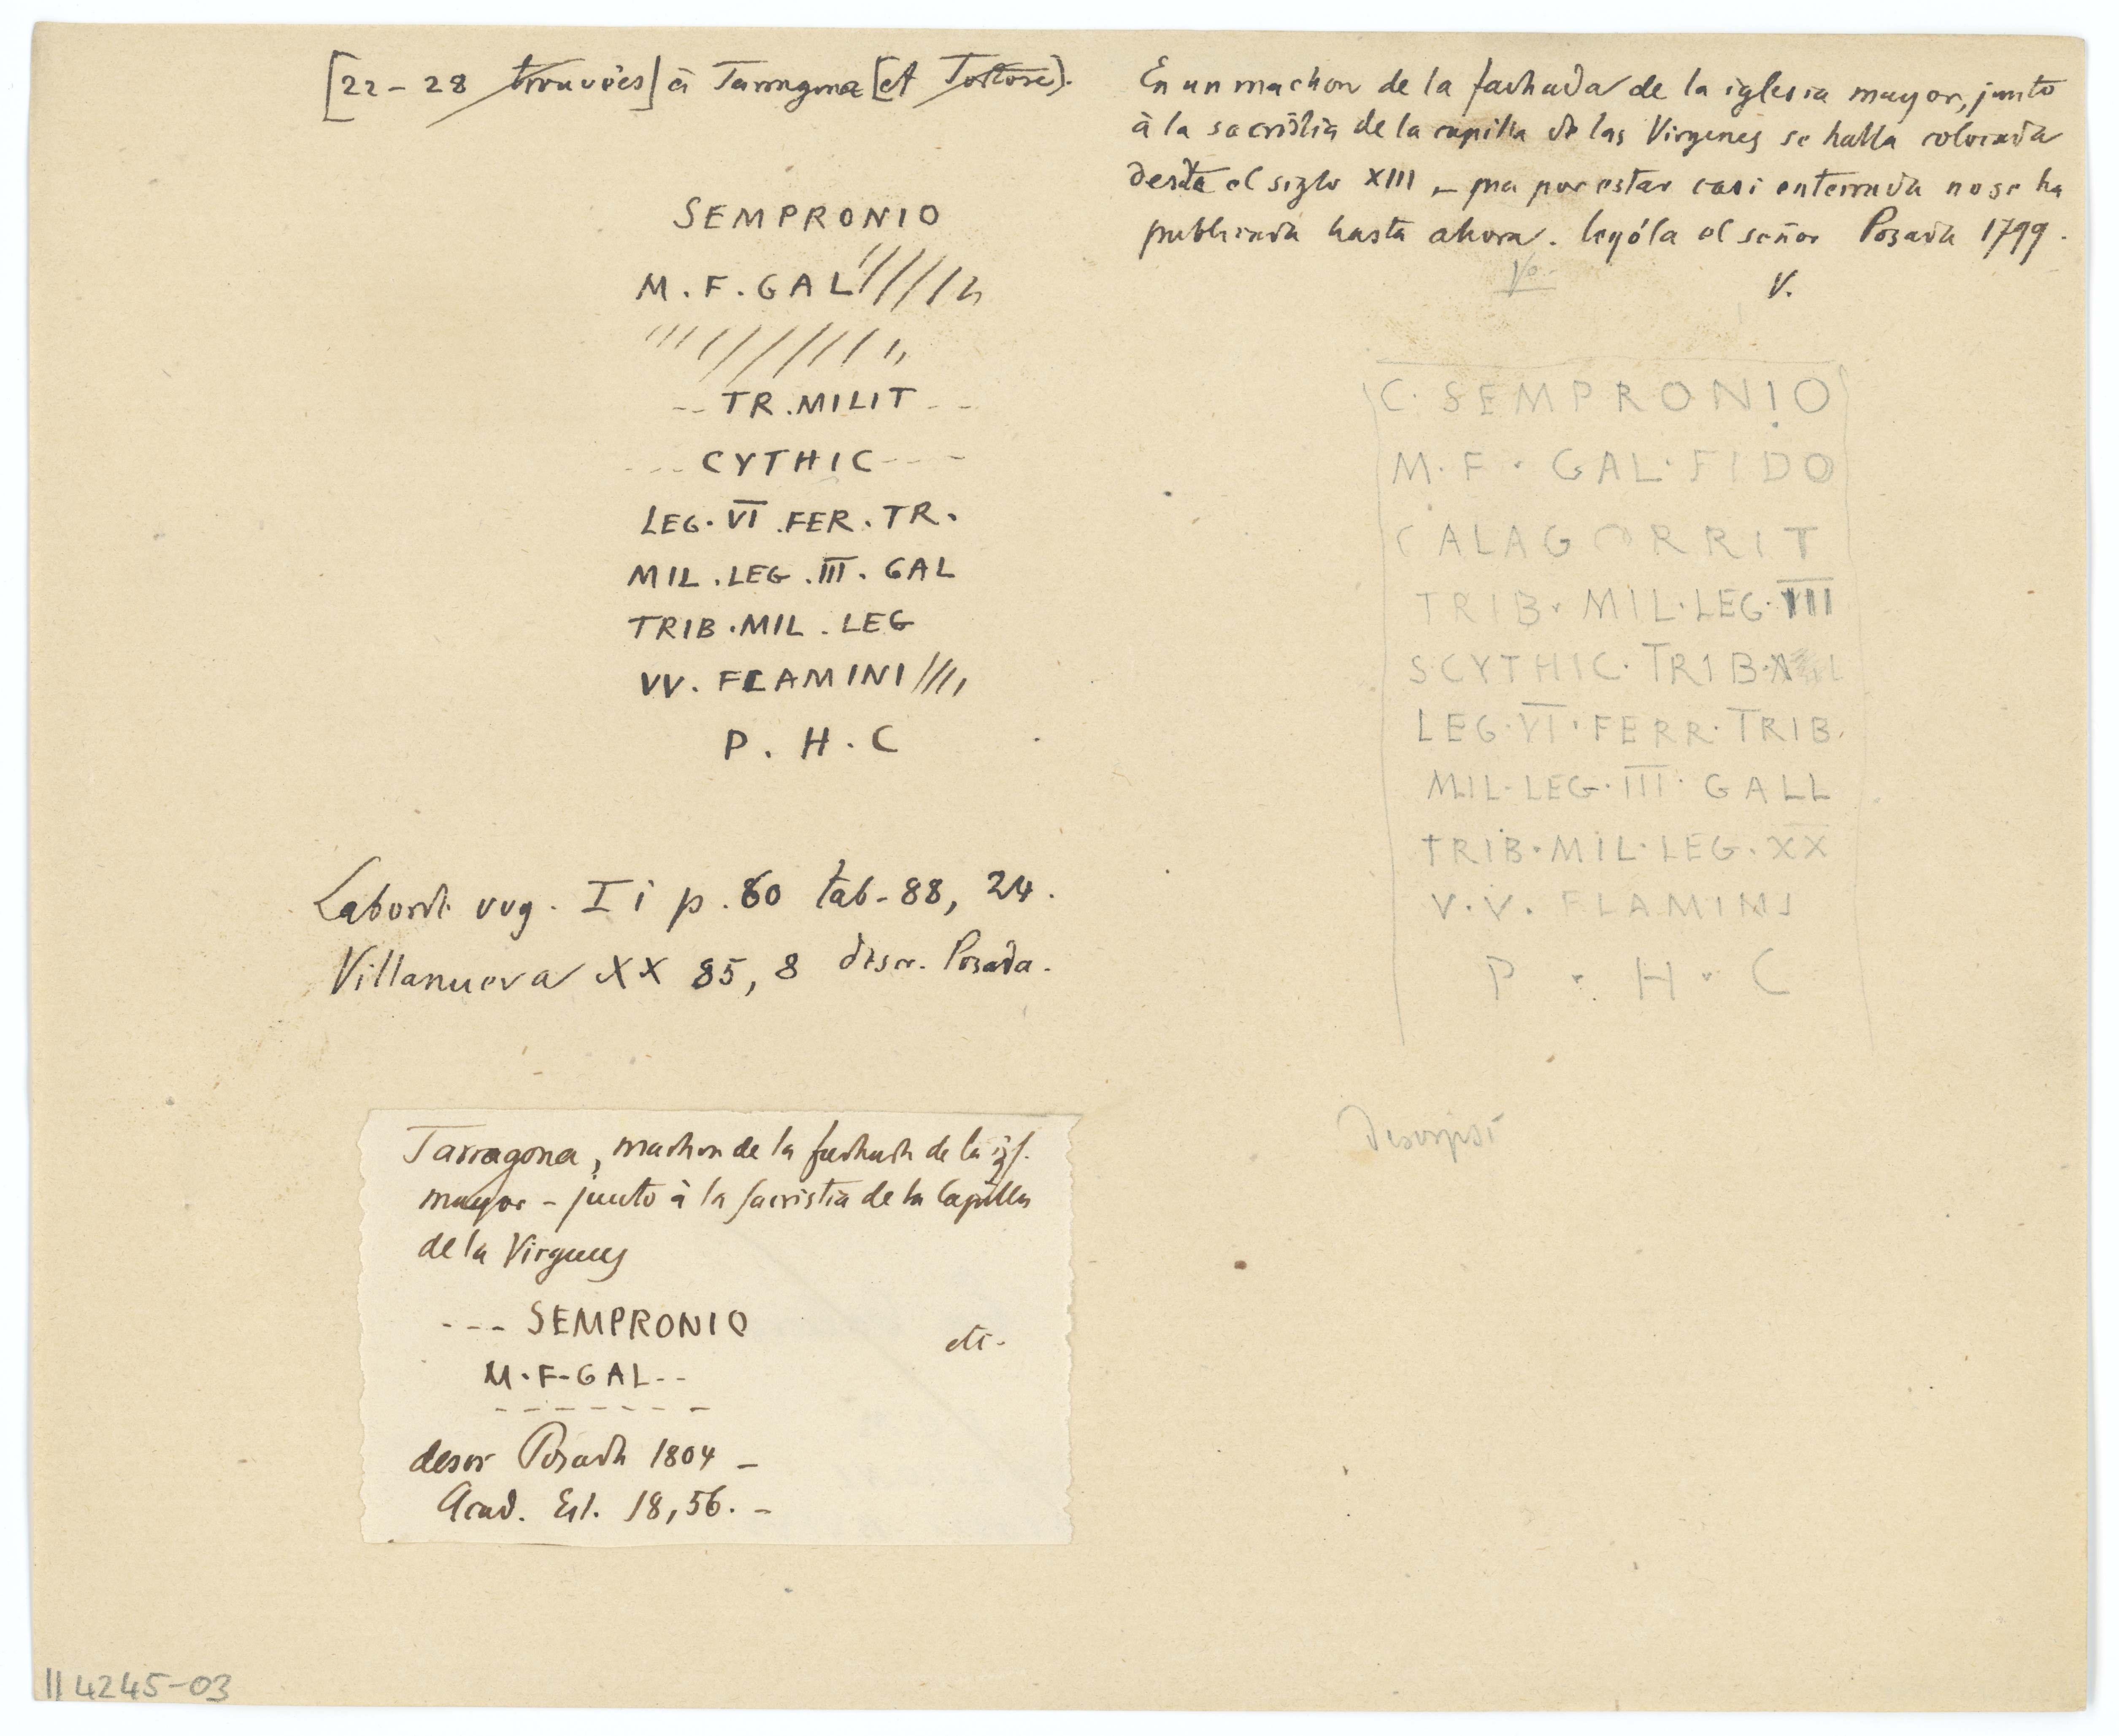 [22 - 28 trouvées] à Tarragona [et Tortose].
SEMPRONIO
M . F . GAL
-- TR . MILIT --
--- CYTHIC ---
LEG . VI . FER . TR .
MIL . LEG . III . GAL
TRIB . MIL . LEG
VV . FLAMINI
P . H . C
Laborde voy . I i p . 60 tab - 88, 24 .
Villanueva XX 85, 8 descr. Posada .
Tarragona, machon de la fachada de la igl.
mayor - junto à la sacristia de la Capilla
de la Virgenes
--- SEMPRONIO etc.
M . F - GAL --
descr Posada 1804 -
Acad. Est. 18,56. -
En un machon de la fachada de la iglesia mayor, junto
à la sacristia de la capilla de las Virgenes se halla colocada
desde el siglo XIII, por estar casi enterrada no se ha
publicada hasta ahora . leyóla el señor Posada 1799 .
V.
C . SEMPRONIO
M . F . GAL . FIDO
CALAGORRIT
TRIB . MIL . LEG . IIII
SCYTHIC . TRIB . MIL
LEG . VI . FERR . TRIB .
MIL . LEG . III . GALL
TRIB . MIL . LEG . XX
V . V . FLAMINI
P . H . C
Descripsi
II 4245-03